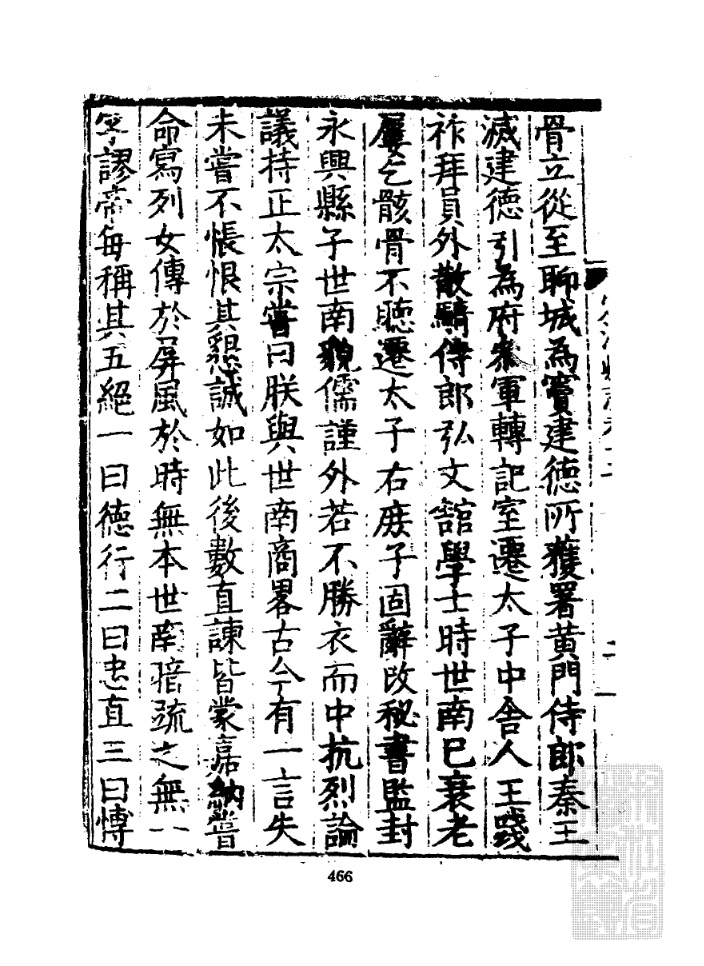 骨立從至聊城為竇建德所獲署黄門侍郎秦王
滅建德引為府叅軍轉記室遷太子中舎人王踐
祚拜員外散騎侍郎弘文舘學士時世南已衰老
屢乞骸骨不聽遷太子右庶子固辭改秘書監封
永興縣子世南貌儒謹外若不勝衣而中抗烈論
議持正太宗嘗曰朕與世南商畧古今有一言失
未嘗不悵恨其懇誠如此後數直諫皆蒙嘉納嘗
命寫列女傳於屏風於時無本世南暗疏之無一
字謬帝每稱其五絕一曰德行二曰忠直三曰愽
466